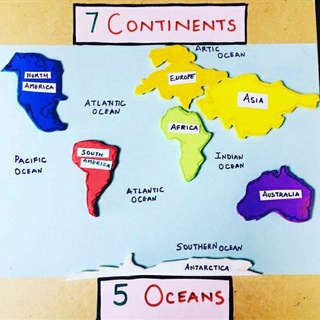 7 CONTINENTS
ARTIC
OCEAN
NORTH
AMERICA
EUROPE
ASIA
ATLANTIC
OCEAN
AFRICA
SOUTH
AMERICA
PACIFIC
OCEAN
INDIAN
OCEAN
ATLANTIC
OCEAN
AUSTRALIA
SOUTHERN OCEAN
ANTARCTICA
5 OCEANS